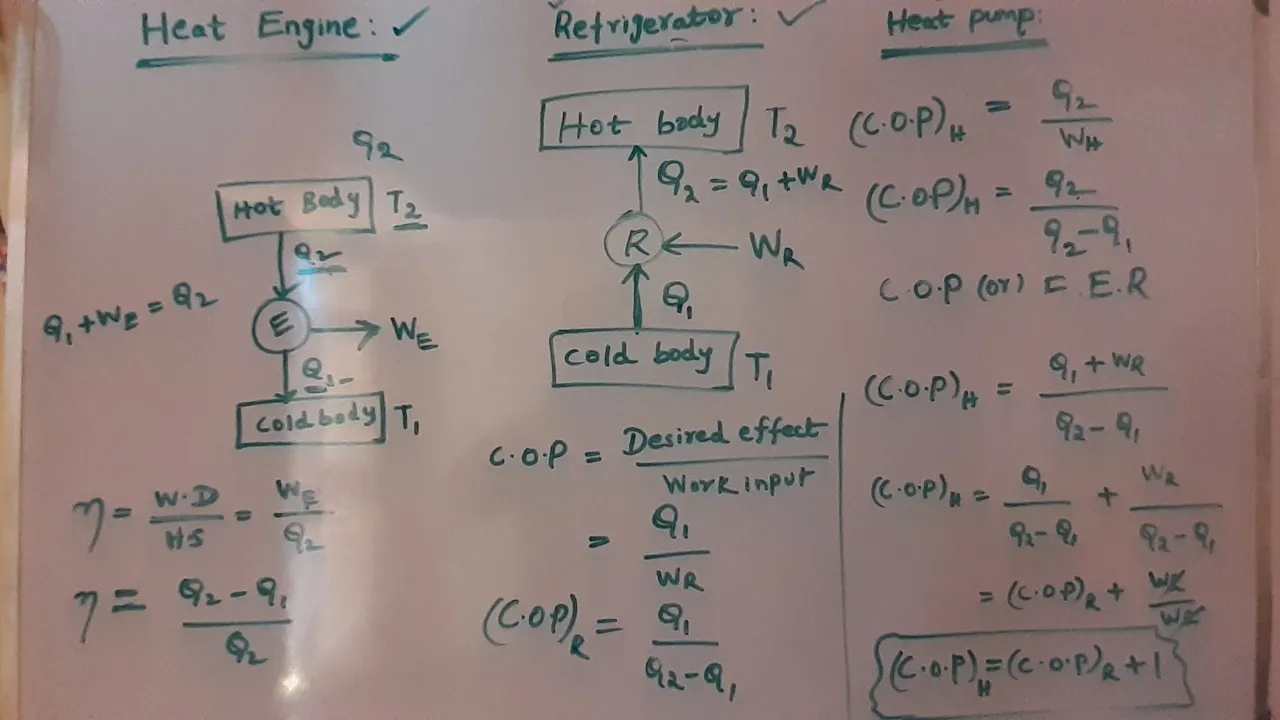 Heat Engine: ✓
Q2
Hot Body T2
Q2
Q1 + WE = Q2
E
WE
Q1
Cold body T1
η = W.D / H.S = WE / Q2
η = Q2 - Q1 / Q2
Refrigerator: ✓
Hot body T2
Q2 = Q1 + WR
R
WR
Q1
Cold body T1
C.O.P = Desired effect / Work input
= Q1 / WR
(C.O.P)R = Q1 / Q2 - Q1
Heat pump:
(C.O.P)H = Q2 / WH
(C.O.P)H = Q2 / Q2 - Q1
C.O.P (or) = E.R
(C.O.P)H = Q1 + WR / Q2 - Q1
(C.O.P)H = Q1 / Q2 - Q1 + WR / Q2 - Q1
= (C.O.P)R + WR / WR
(C.O.P)H = (C.O.P)R + 1